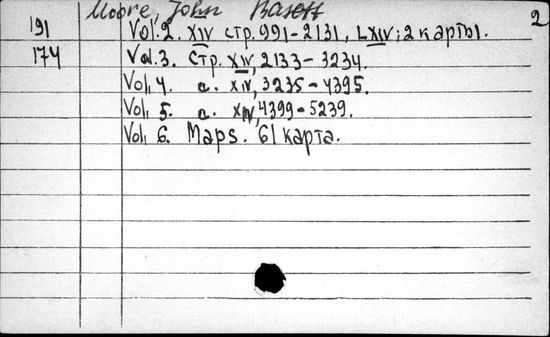 Moore, John Basett
2
191 Vol. 2. XIV стр. 991-2131, LXIV; 2 карты.
174 Vol. 3. Стр. XIV, 2133-3234.
Vol. 4. с. XIV, 3235-4395.
Vol. 5. с. XIV, 4399-5239.
Vol. 6. Maps. 61 карта.